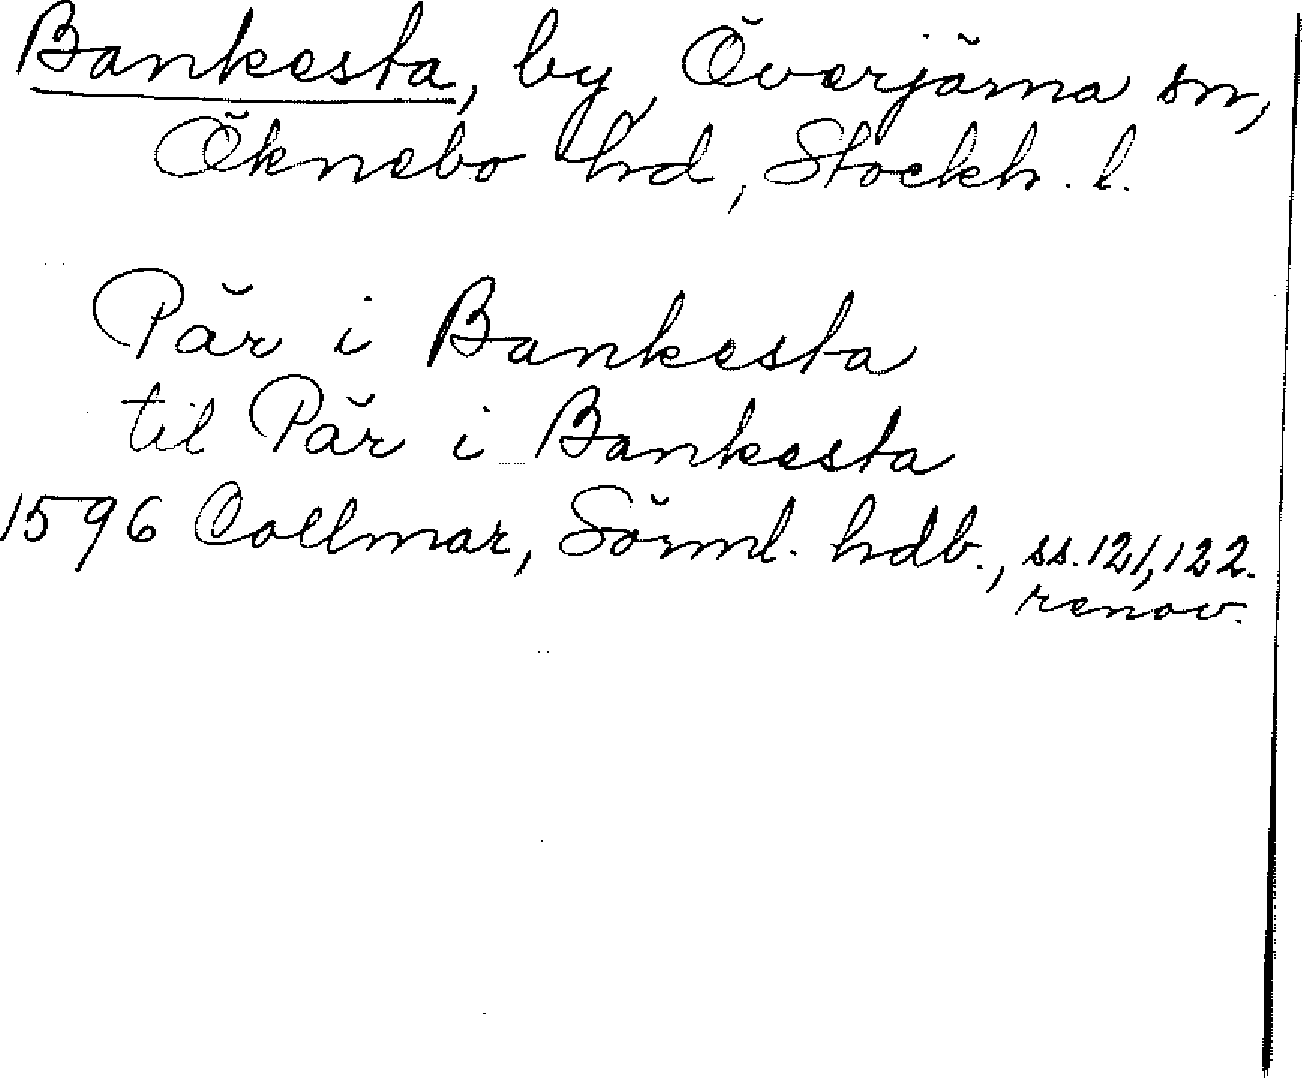 Bankesta, by, Överjärna sn,
Öknebo hd, Stockh. l.
Pär i Bankesta
til Pär i Bankesta
1596 Collmar, Sörml. hdb., ss. 121, 122.
renov.